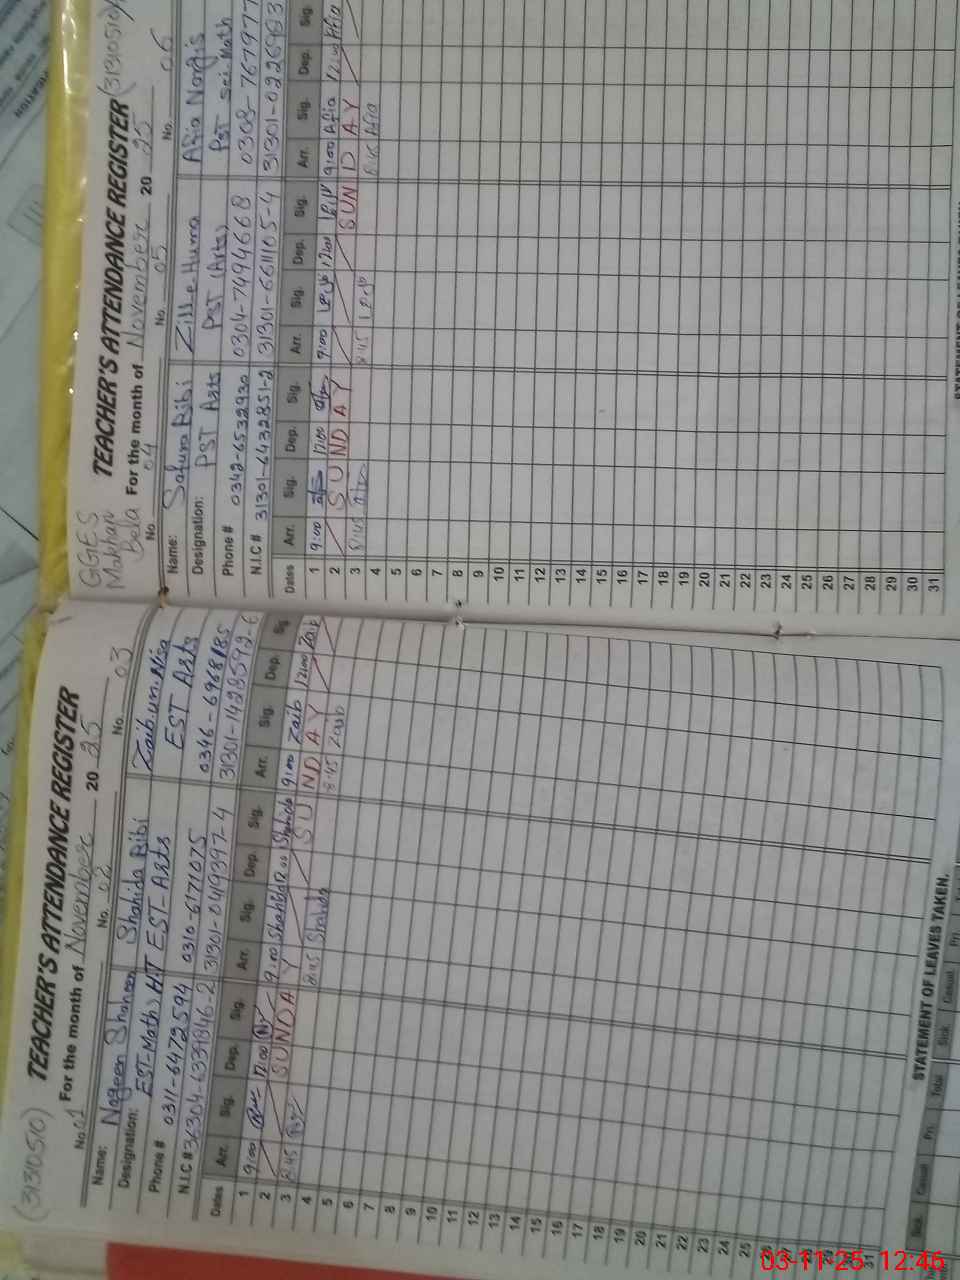 (31310510)
TEACHER'S ATTENDANCE REGISTER
For the month of November 20 25
No 01 No. 02 No. 03
Name: Nageen Shaheen Shahida Bibi Zaib.un.Nisa
Designation: EST-Math, H.T EST-Arts EST Arts
Phone # 0311-6472594 0310-6171075 0346-6968185
N.I.C # 31301-0419397-4
Dates Arr. Sig. Dep. Sig. Arr. Sig. Dep. Sig. Arr. Sig. Dep. Sig
1 9:00 12:00 9:00 Shahida 12:00 Shahida 9:00 Zaib 12:00 Zaib
2 SUNDAY SUNDAY
3 8:45 8:45 Shahida 8:45 Zaib
4
5
6
7
8
9
10
11
12
13
14
15
16
17
18
19
20
21
22
23
24
25
26
27
28
29
30
31
STATEMENT OF LEAVES TAKEN.
Sick. Casual Pri. Total Sick. Casual Pri.
GGES
Makhan
Bela
TEACHER'S ATTENDANCE REGISTER (31310510)
For the month of November 20 25
No 04 No. 05 No. 06
Name: Safura Bibi Zill e Huma Afia Nargis
Designation: PST Arts PST (Arts) PST Sci. Math
Phone # 0342-6532930 0304-7494668 0308-767977
N.I.C # 31301-6432851-2 31301-6611105-4
Dates Arr. Sig. Dep. Sig. Arr. Sig. Dep. Sig. Arr. Sig. Dep. Sig.
1 9:00 12:00 9:00 12:00 9:00 Afia 12:00 Afia
2 SUNDAY SUNDAY
3 8:45 8:45 8:45 Afia
4
5
6
7
8
9
10
11
12
13
14
15
16
17
18
19
20
21
22
23
24
25
26
27
28
29
30
31
03-11-25 12:46